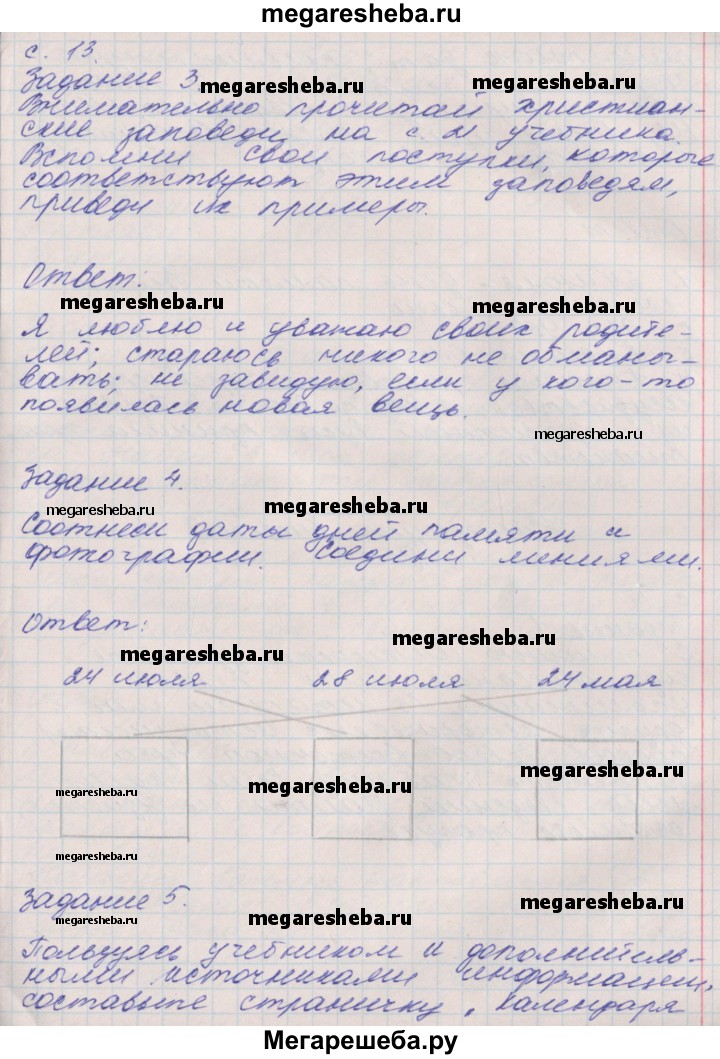 megaresheba.ru
с. 13.
Задание 3. megaresheba.ru megaresheba.ru
Внимательно прочитай христиан-
ские заповеди на с. 11 учебника.
Вспомни свои поступки, которые
соответствуют этим заповедям,
приведи их примеры.
Ответ:
megaresheba.ru megaresheba.ru
Я люблю и уважаю своих родите-
лей; стараюсь никого не обманы-
вать; не завидую, если у кого-то
появилась новая вещь.
megaresheba.ru
Задание 4.
megaresheba.ru megaresheba.ru
Соотнеси даты дней памяти и
фотографии. Соедини линиями.
Ответ:
megaresheba.ru
megaresheba.ru
24 июля 28 июля 24 мая
megaresheba.ru
megaresheba.ru megaresheba.ru
megaresheba.ru
Задание 5. megaresheba.ru
megaresheba.ru megaresheba.ru
Пользуясь учебником и дополнитель-
ными источниками информации,
составьте страничку „календаря
Мегарешеба.ру